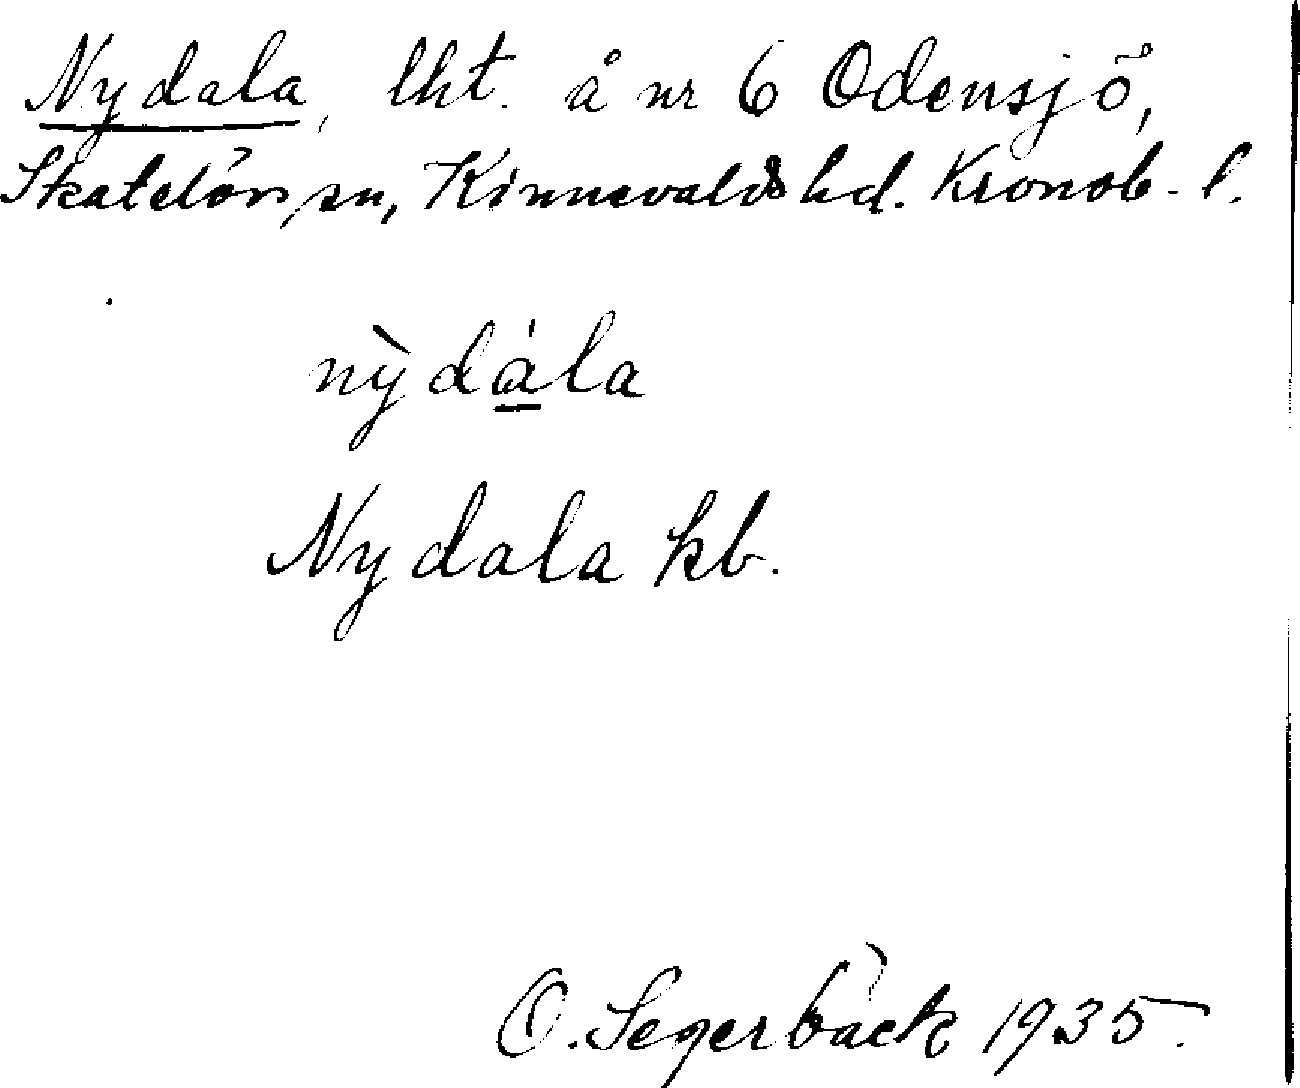 Nydala, lht. å nr 6 Odensjö,
Skatelövs sn, Kinnevalds hd. Kronob. l.
nỳdá̱la
Nydala kb.
O. Segerbäck 1935.